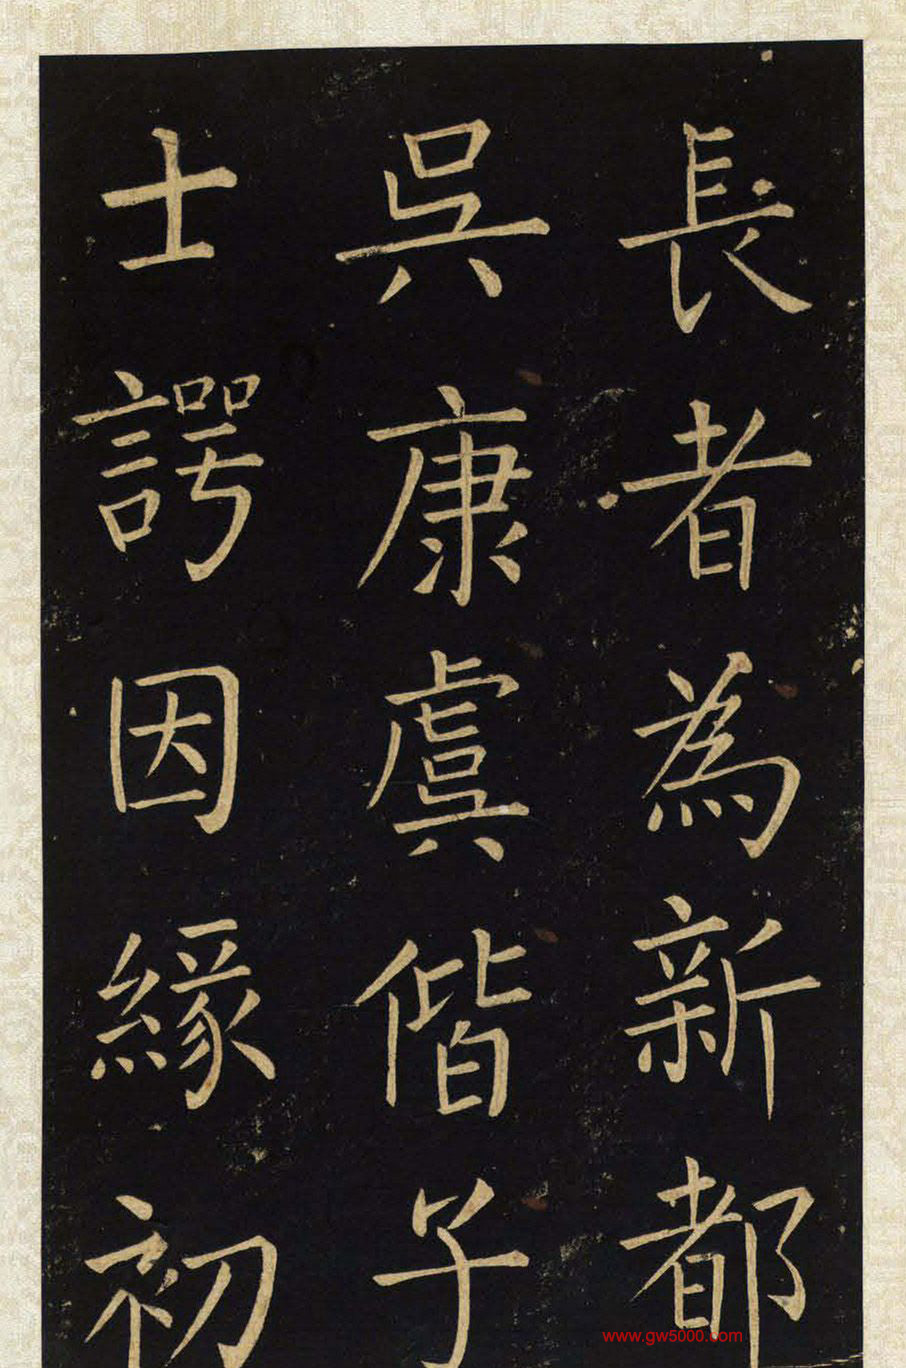 長者為新都
吳康虞偕子
士諤因緣初
www.gw5000.com